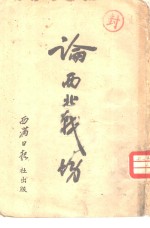 論西北戰場
西滿日報社出版
封